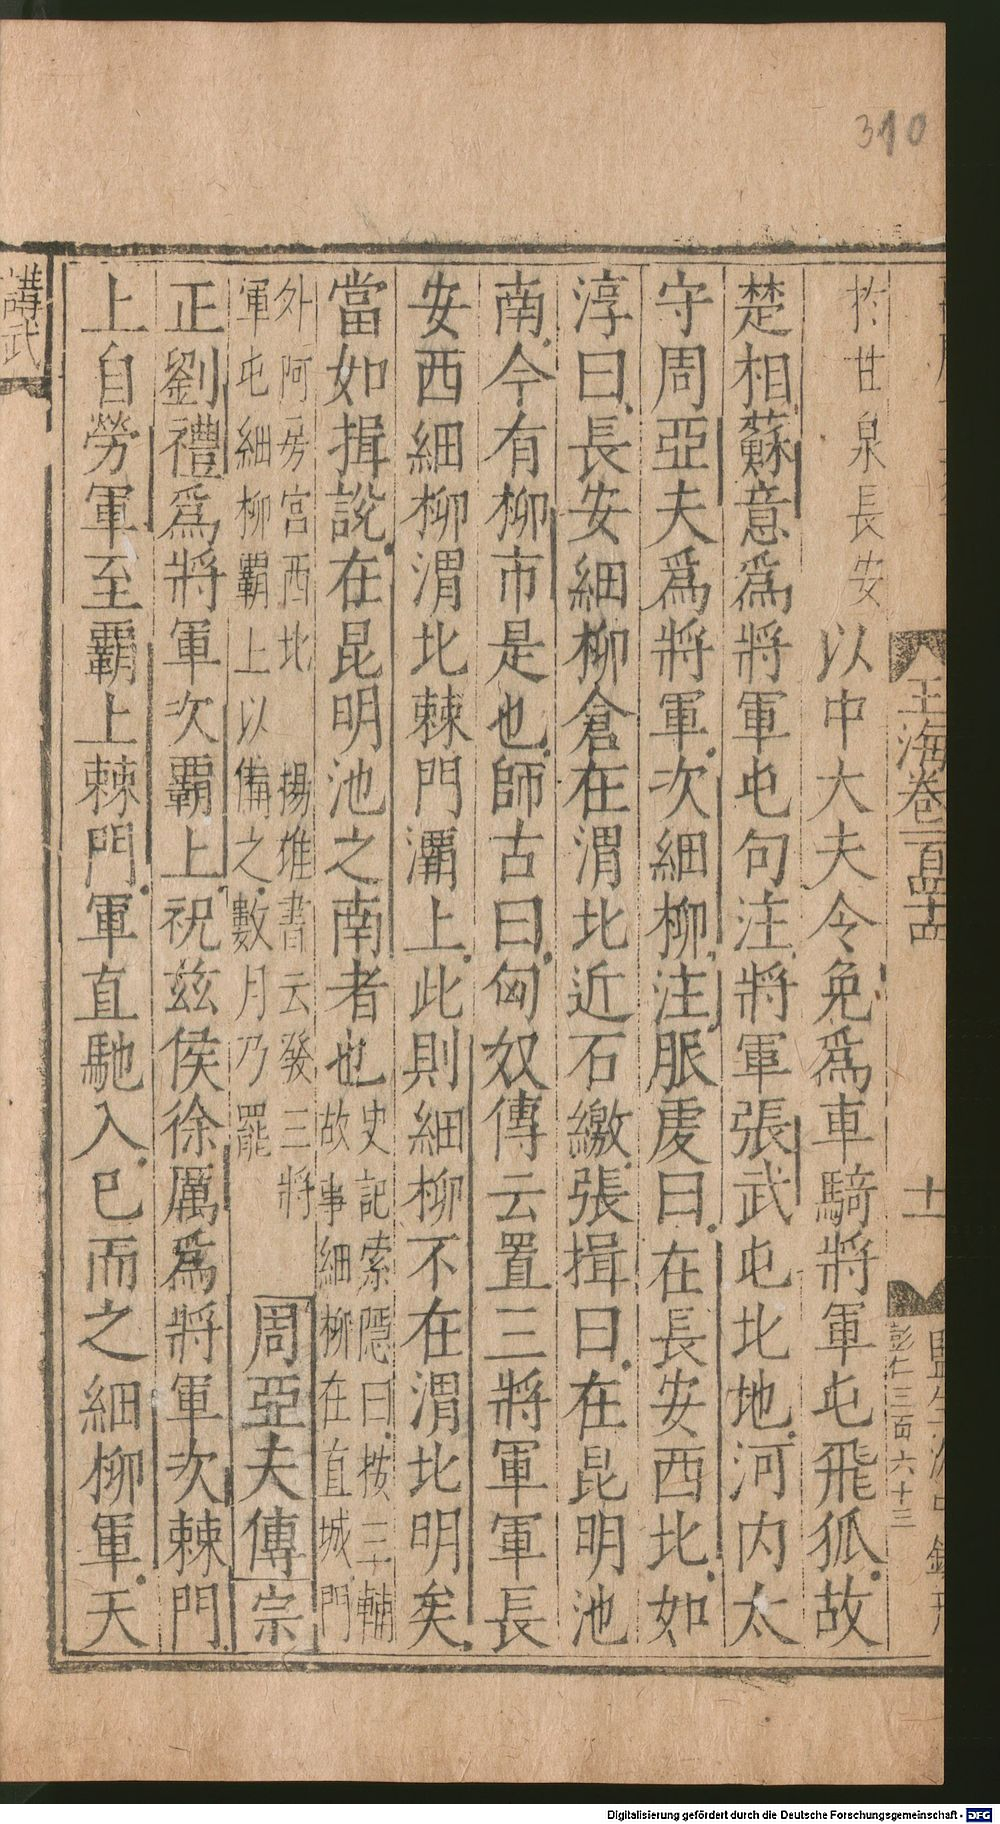 310
玉海卷一百四十四
十一
彭仁三百六十三
於甘泉長安以中大夫令免爲車騎將軍屯飛狐故
楚相蘇意爲將軍屯句注將軍張武屯北地河内太
守周亞夫爲將軍次細柳注服虔曰在長安西北如
淳曰長安細柳倉在渭北近石繳張揖曰在昆明池
南今有柳市是也師古曰匈奴傳云置三將軍軍長
安西細柳渭北棘門灞上此則細柳不在渭北明矣
當如揖説在昆明池之南者也史記索隱曰按三輔
故事細柳在直城門
外阿房宫西北 揚雄書云發三將
軍屯細柳覇上以備之數月乃罷
周亞夫傳宗
正劉禮爲將軍次覇上祝兹侯徐厲爲將軍次棘門
上自勞軍至覇上棘門軍直馳入已而之細柳軍天
講武
Digitalisierung gefördert durch die Deutsche Forschungsgemeinschaft - DFG